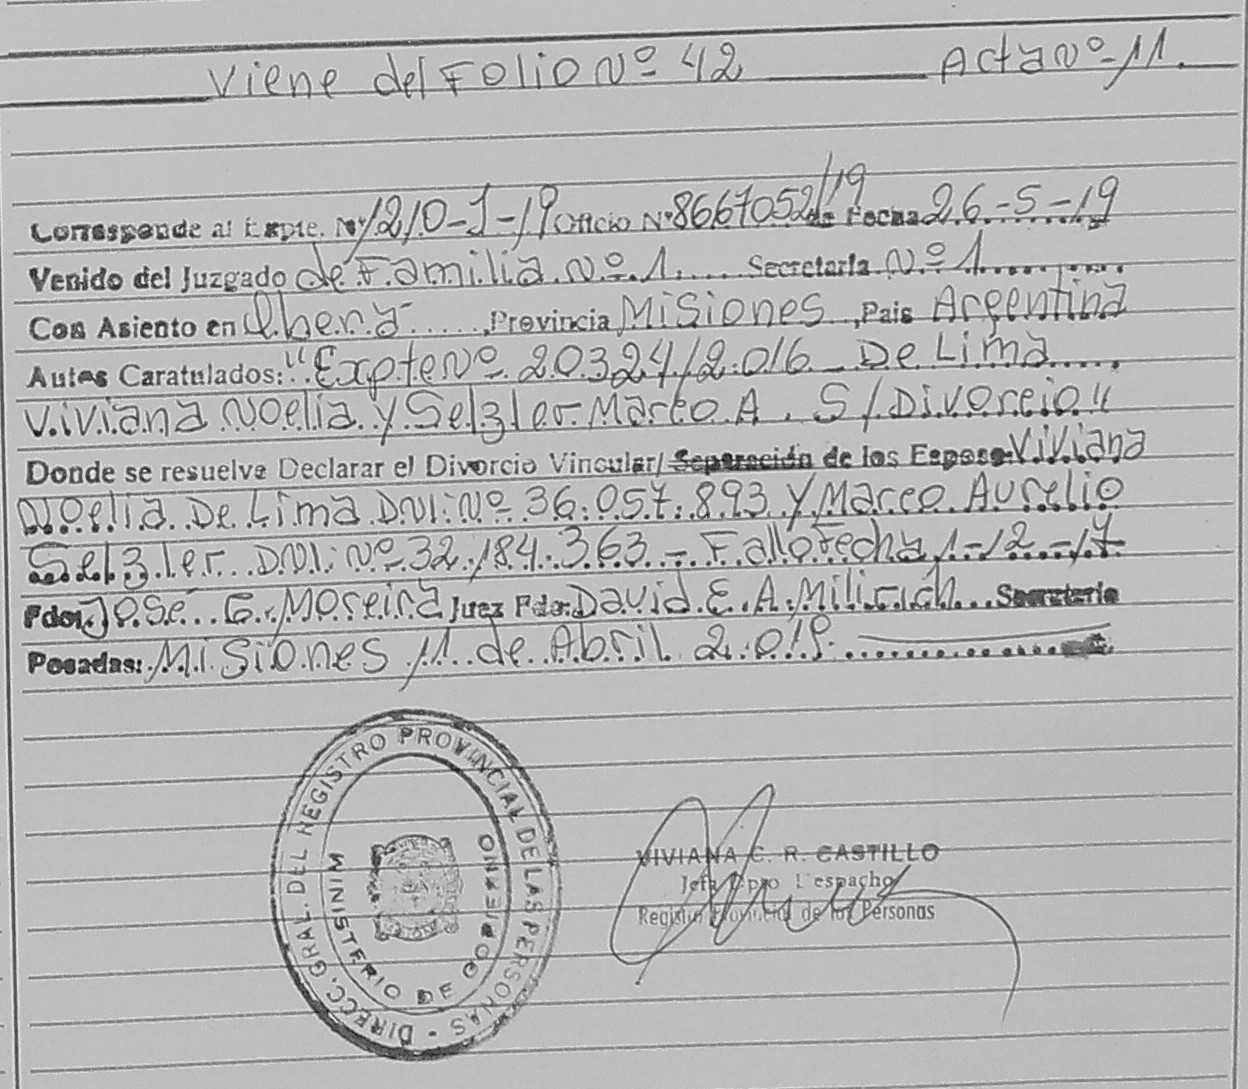 Viene del Folio Nº 42 Acta Nº 11.
Corresponde al Expte. Nº 1210-J-19 Oficio Nº 8667052/19 de Fecha 26-5-19
Venido del Juzgado de Familia Nº 1. Secretaria Nº 1
Con Asiento en Oberá Provincia Misiones, Pais Argentina
Autos Caratulados: "Expte Nº 20324/2016 De Lima
Viviana Noelia y Selzler Marco A. S/Divorcio"
Donde se resuelve Declarar el Divorcio Vincular/ Separación de los Esposo: Viviana
Noelia De Lima DNI: Nº 36.057.893 y Marco Aurelio
Selzler DNI: Nº 32.184.363 - Fallo Fecha 1-12-17
Fdo: José G. Moreira Juez Fdo: David E. A. Milicich Secretario
Posadas: Misiones 11 de Abril 2.019.
DIRECC. GRAL. DEL REGISTRO PROVINCIAL DE LAS PERSONAS -
MINISTERIO DE GOBIERNO
VIVIANA C. R. CASTILLO
Jefa Dpto Despacho
Registro Provincial de las Personas